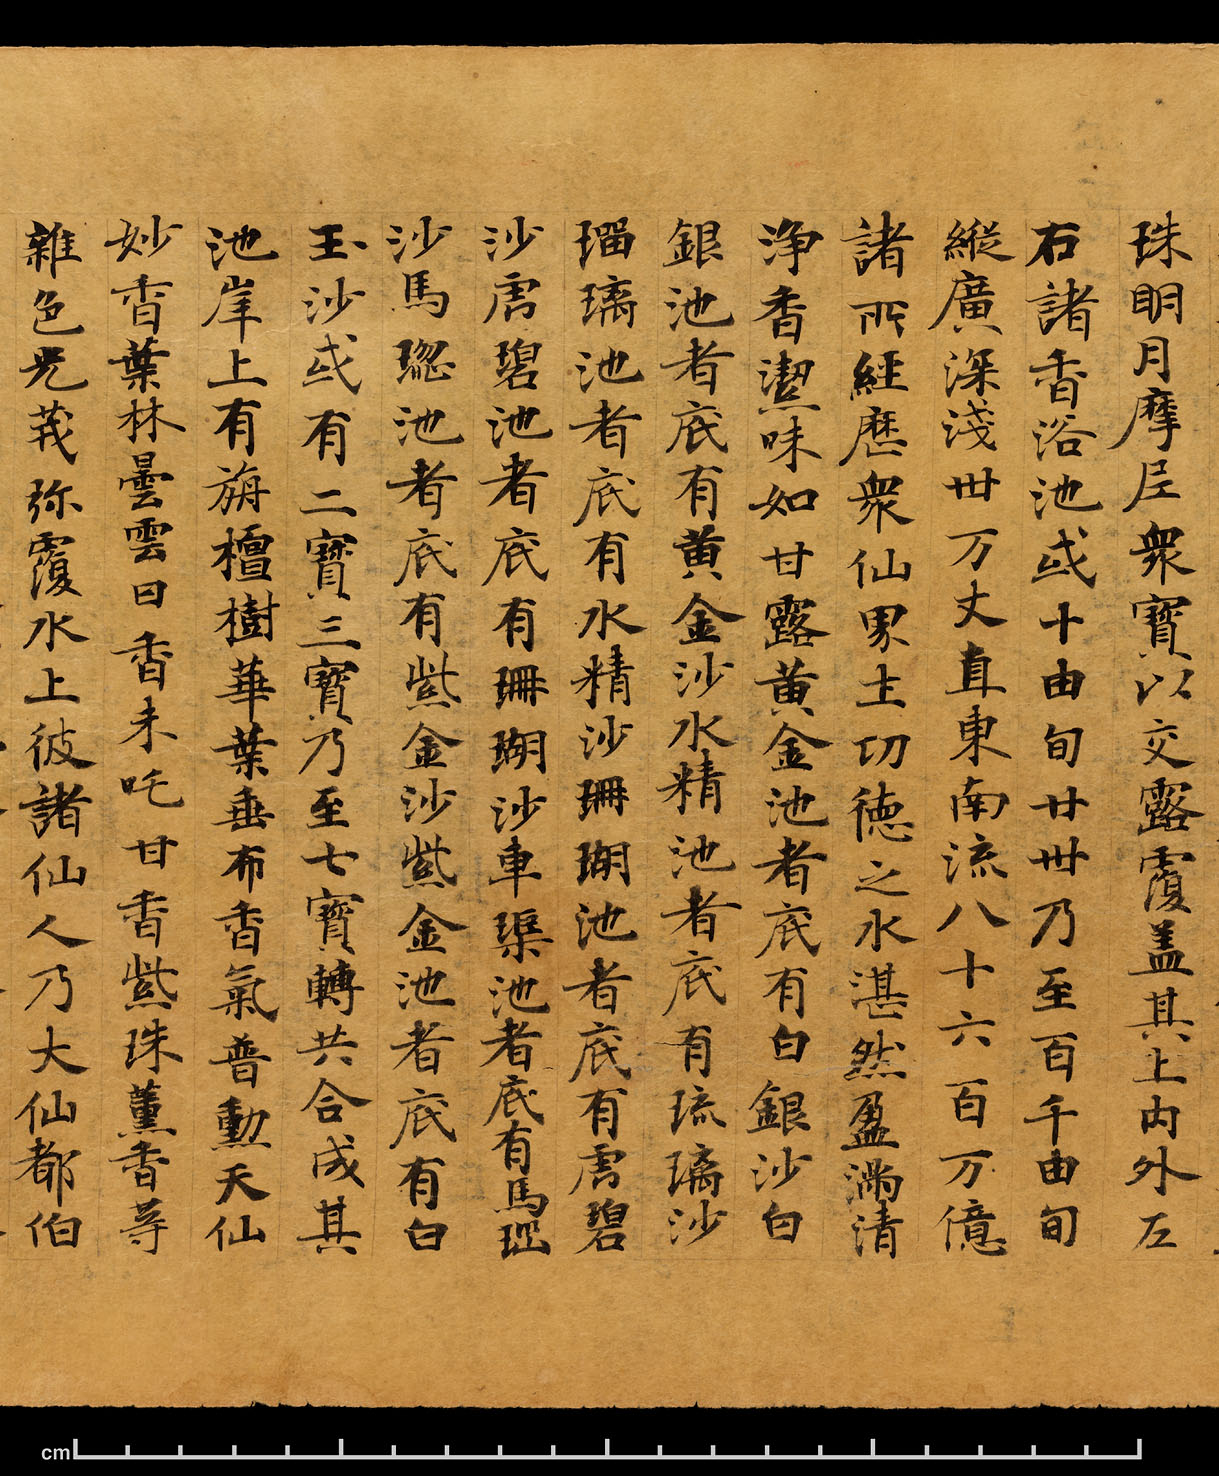 珠明月摩尼衆寶以交露覆盖其上内外左
右諸香浴池或十由旬廿卅乃至百千由旬
縱廣深淺卌万丈直東南流八十六百万億
諸所經歷衆仙界土功德之水湛然盈滿清
淨香潔味如甘露黄金池者底有白銀沙白
銀池者底有黄金沙水精池者底有琉璃沙
瑠璃池者底有水精沙珊瑚池者底有虎碧
沙虎碧池者底有珊瑚沙車渠池者底有馬瑙
沙馬瑙池者底有紫金沙紫金池者底有白
玉沙或有二寶三寶乃至七寶轉共合成其
池岸上有旃檀樹華葉垂布香氣普勳天仙
妙香葉林曇雲曰香未吒甘香紫珠薰香等
雜色光茂弥覆水上彼諸仙人乃大仙都伯
cm